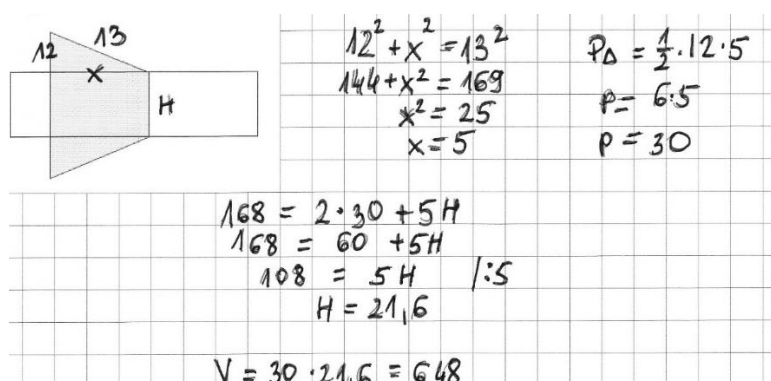 12 13
x
H
12² + x² = 13²
144 + x² = 169
x² = 25
x = 5
P△ = 1/2 · 12 · 5
P = 6·5
P = 30
168 = 2 · 30 + 5H
168 = 60 + 5H
108 = 5H /:5
H = 21,6
V = 30 · 21,6 = 648